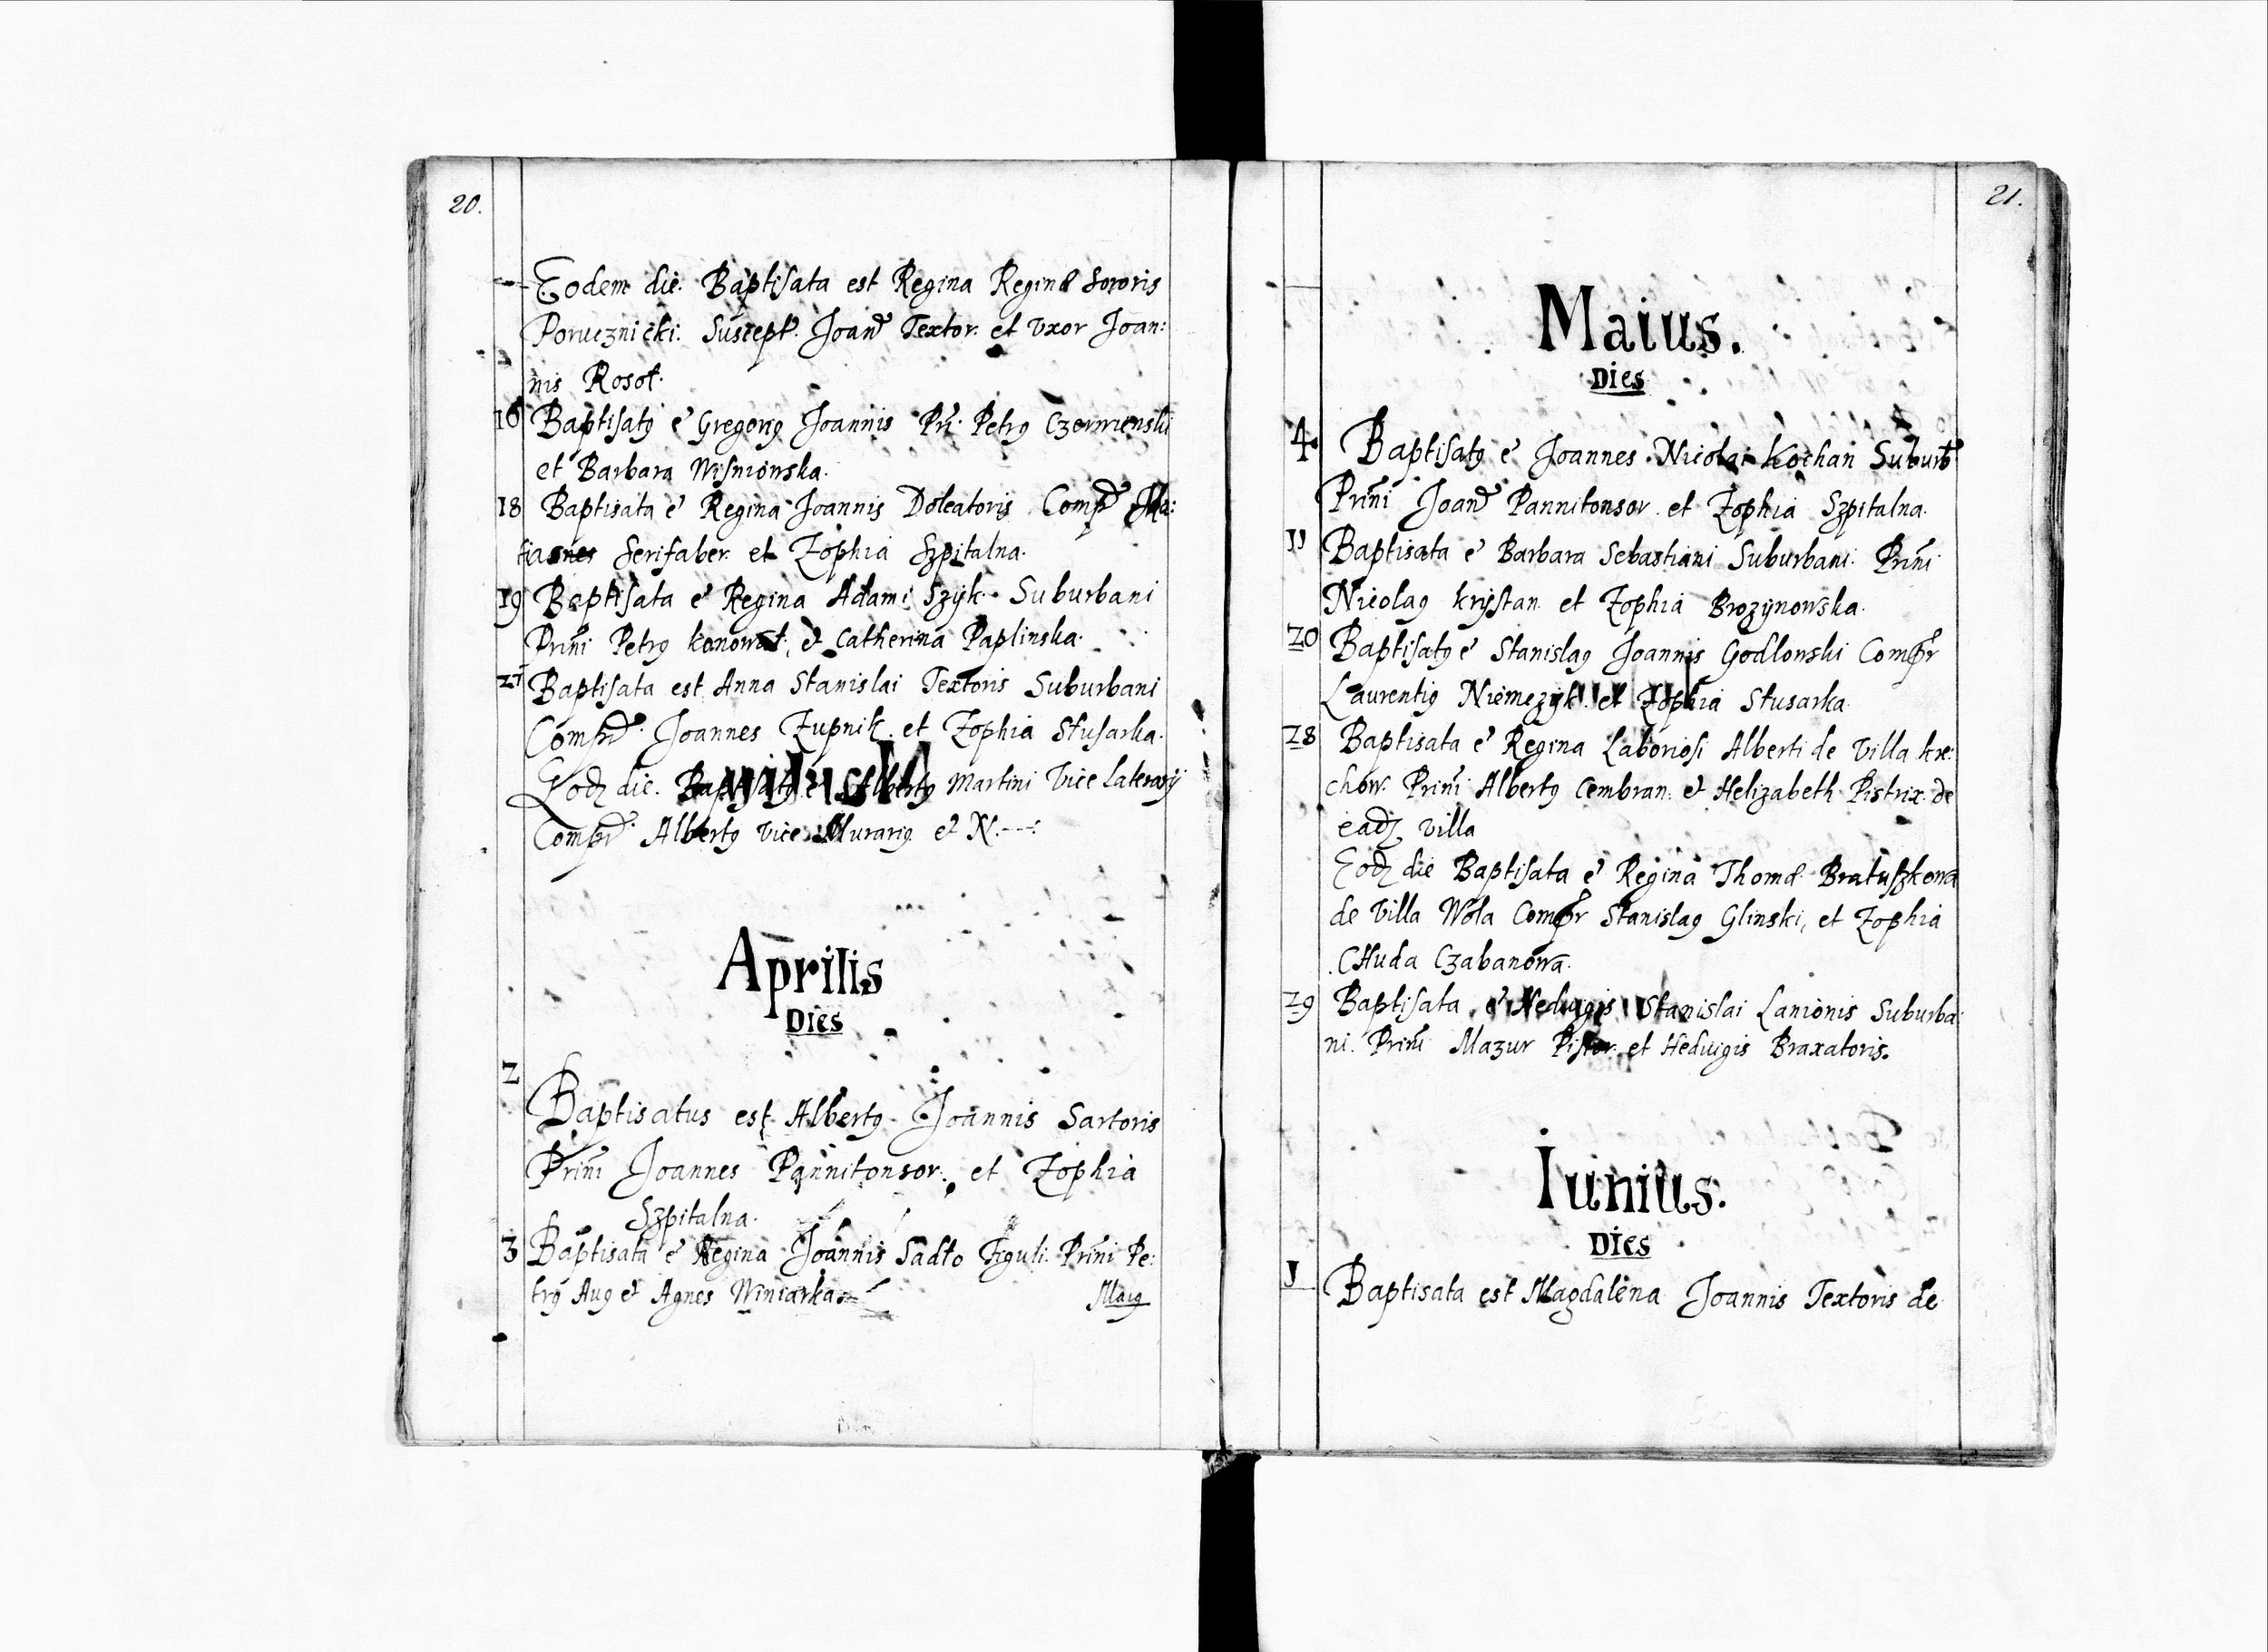 20.
Eodem die. Baptisata est Regina Reginæ Sororis
Porucznicki. Suscept. Joan Textor. et Vxor Joan:
nis Rosoł.
16 Baptisatꝯ e Gregoriꝯ Joannis Pri. Petrꝯ Czermienski
et Barbara Wisniowska.
18 Baptisata e Regina Joannis Doleatoris Comp Ma:
Serifaber. et Zophia Szpitalna.
19 Baptisata e Regina Adami Szyk. Suburbani
Prini Petrꝯ et Catherina Paplinska.
21 Baptisata est Anna Stanislai Textoris Suburbani
Compr. Joannes Zupnik. et Zophia Slusarka.
Eodz die. Baptisatꝯ e Albertꝯ Martini Vice Laterarij
Compr. Albertꝯ Vice Murariꝯ et N.---:
Aprilis
Dies
2
Baptisatus est Albertꝯ Joannis Sartoris
Prini Joannes Pannitonsor. et Zophia
Szpitalna.
3 Baptisata e Regina Joannis Sadło Figuli. Prini Pe:
trꝯ Aug et Agnes Winiarka.
Maiꝯ
21.
Maius.
Dies
4. Baptisatꝯ e Joannes Nicolai Kochan Suburb.
Prini Joan Pannitonsor et Zophia Szpitalna.
11 Baptisata e Barbara Sebastiani Suburbani. Prini
Nicolaꝯ Krystan et Zophia Brozynowska.
20 Baptisatꝯ e Stanislaꝯ Joannis Godlonski Compr
Laurentiꝯ Niemczyk. et Zophia Slusarka.
28 Baptisata e Regina Laboriosi Alberti de Villa Kre:
chow. Prini Albertꝯ Cembran. et Helizabeth Pistrix de
eadz villa
Eodz die Baptisata e Regina Thomæ Bratuszkowa
de Villa Wola Compr Stanislaꝯ Glinski, et Zophia
CHuda Czabanowa.
29 Baptisata e Hedwigis Stanislai Lanionis Suburba:
ni. Prini Mazur Pistor. et Hedwigis Braxatoris.
Iunius.
Dies
1 Baptisata est Magdalena Joannis Textoris de